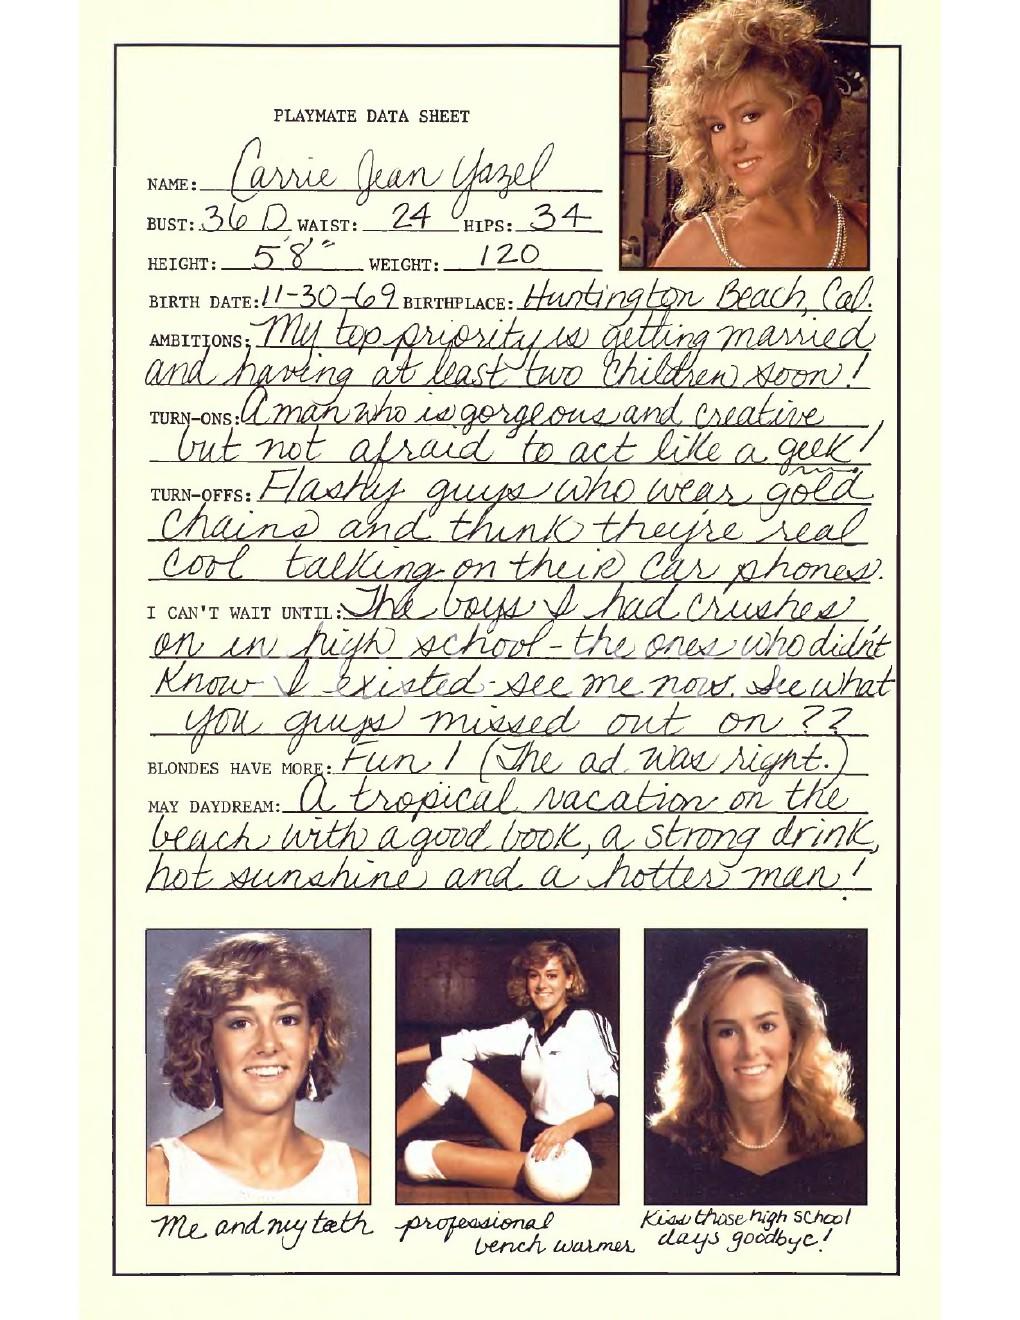 PLAYMATE DATA SHEET
NAME: Carrie Jean Yazel
BUST: 36 D WAIST: 24 HIPS: 34
HEIGHT: 5'8" WEIGHT: 120
BIRTH DATE: 11-30-69 BIRTHPLACE: Huntington Beach, Cal.
AMBITIONS: My top priority is getting married
and having at least two children soon!
TURN-ONS: A man who is gorgeous and creative,
but not afraid to act like a geek!
TURN-OFFS: Flashy guys who wear gold
chains and think they're real
cool talking on their car phones.
I CAN'T WAIT UNTIL: The boys I had crushes
on in high school - the ones who didn't
know I existed - see me now. See what
you guys missed out on ??
BLONDES HAVE MORE: Fun! (The ad was right.)
MAY DAYDREAM: A tropical vacation on the
beach with a good book, a strong drink,
hot sunshine and a hotter man!
Me and my teeth
professional
bench warmer
Kiss those high school
days goodbye!